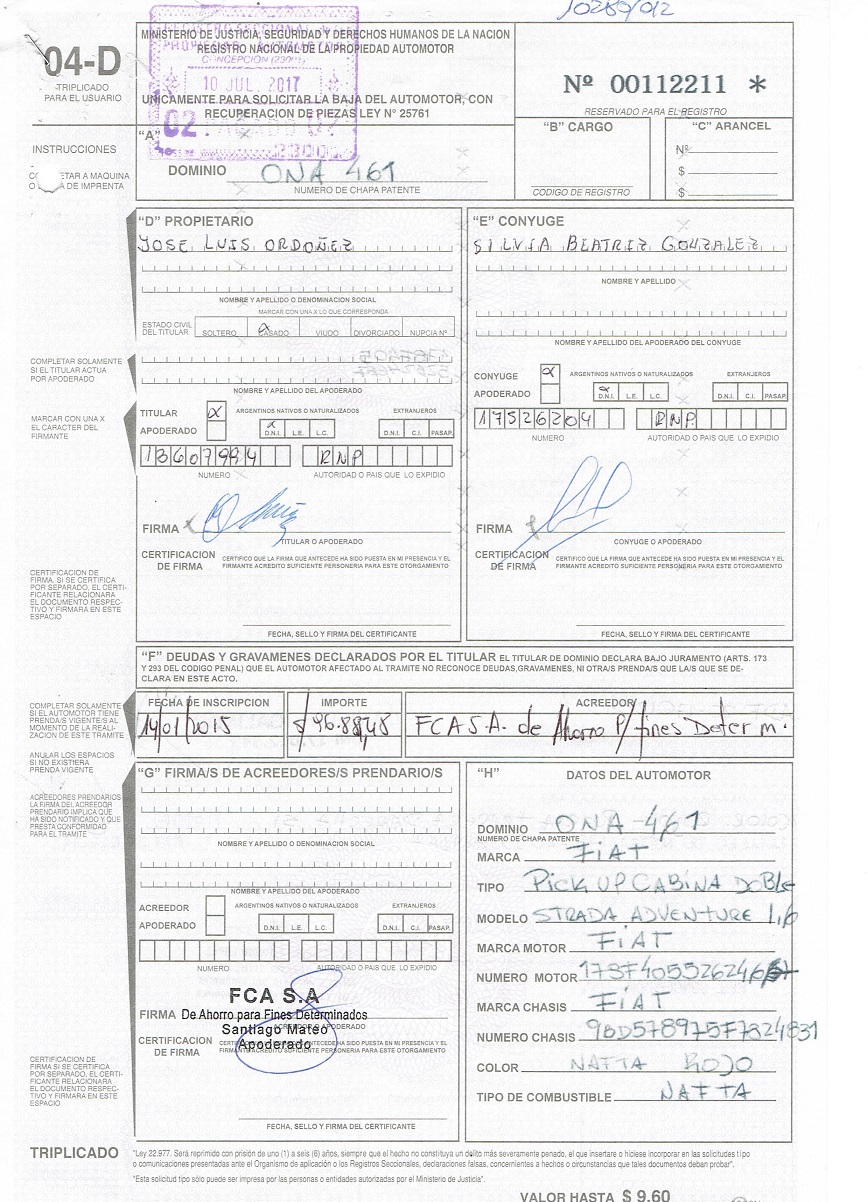 10289/012
04-D
TRIPLICADO
PARA EL USUARIO
MINISTERIO DE JUSTICIA, SEGURIDAD Y DERECHOS HUMANOS DE LA NACION
REGISTRO NACIONAL DE LA PROPIEDAD AUTOMOTOR
CONCEPCIÓN
10 JUL. 2017
UNICAMENTE PARA SOLICITAR LA BAJA DEL AUTOMOTOR, CON
RECUPERACION DE PIEZAS LEY N° 25761
02
Nº 00112211 *
RESERVADO PARA EL REGISTRO
"A"
"B" CARGO
CODIGO DE REGISTRO
"C" ARANCEL
Nº
$
$
INSTRUCCIONES
A MAQUINA
DE IMPRENTA
DOMINIO ONA 461
NUMERO DE CHAPA PATENTE
"D" PROPIETARIO
JOSE LUIS ORDOÑEZ
NOMBRE Y APELLIDO O DENOMINACION SOCIAL
MARCAR CON UNA X LO QUE CORRESPONDA
ESTADO CIVIL
DEL TITULAR
SOLTERO CASADO VIUDO DIVORCIADO NUPCIA Nº
COMPLETAR SOLAMENTE
SI EL TITULAR ACTUA
POR APODERADO
NOMBRE Y APELLIDO DEL APODERADO
MARCAR CON UNA X
EL CARACTER DEL
FIRMANTE
TITULAR X
APODERADO
ARGENTINOS NATIVOS O NATURALIZADOS
EXTRANJEROS
X
D.N.I. L.E. L.C.
D.N.I. C.I. PASAP.
13607994 RNP
NUMERO
AUTORIDAD O PAIS QUE LO EXPIDIO
FIRMA X
TITULAR O APODERADO
CERTIFICACION
DE FIRMA
CERTIFICO QUE LA FIRMA QUE ANTECEDE HA SIDO PUESTA EN MI PRESENCIA Y EL
FIRMANTE ACREDITO SUFICIENTE PERSONERIA PARA ESTE OTORGAMIENTO
CERTIFICACION DE
FIRMA. SI SE CERTIFICA
POR SEPARADO, EL CERTI-
FICANTE RELACIONARA
EL DOCUMENTO RESPEC-
TIVO Y FIRMARA EN ESTE
ESPACIO
FECHA, SELLO Y FIRMA DEL CERTIFICANTE
"E" CONYUGE
SILVIA BEATRIZ GONZALEZ
NOMBRE Y APELLIDO
NOMBRE Y APELLIDO DEL APODERADO DEL CONYUGE
CONYUGE X
APODERADO
ARGENTINOS NATIVOS O NATURALIZADOS
EXTRANJEROS
X
D.N.I. L.E. L.C.
D.N.I. C.I. PASAP.
17526204 RNP
NUMERO
AUTORIDAD O PAIS QUE LO EXPIDIO
FIRMA X
CONYUGE O APODERADO
CERTIFICACION
DE FIRMA
CERTIFICO QUE LA FIRMA QUE ANTECEDE HA SIDO PUESTA EN MI PRESENCIA Y EL
FIRMANTE ACREDITO SUFICIENTE PERSONERIA PARA ESTE OTORGAMIENTO
FECHA, SELLO Y FIRMA DEL CERTIFICANTE
"F" DEUDAS Y GRAVAMENES DECLARADOS POR EL TITULAR EL TITULAR DE DOMINIO DECLARA BAJO JURAMENTO (ARTS. 173
Y 293 DEL CODIGO PENAL) QUE EL AUTOMOTOR AFECTADO AL TRAMITE NO RECONOCE DEUDAS,GRAVAMENES, NI OTRA/S PRENDA/S QUE LA/S QUE SE DE-
CLARA EN ESTE ACTO.
COMPLETAR SOLAMENTE
SI EL AUTOMOTOR TIENE
PRENDA/S VIGENTE/S AL
MOMENTO DE LA REALI-
ZACION DE ESTE TRAMITE
ANULAR LOS ESPACIOS
SI NO EXISTIERA
PRENDA VIGENTE
FECHA DE INSCRIPCION
14/01/2015
IMPORTE
ACREEDOR
FCA S.A. de Ahorro P/fines Determ.
"G" FIRMA/S DE ACREEDORES/S PRENDARIO/S
ACREEDORES PRENDARIOS
LA FIRMA DEL ACREEDOR
PRENDARIO IMPLICA QUE
HA SIDO NOTIFICADO Y QUE
PRESTA CONFORMIDAD
PARA EL TRAMITE
NOMBRE Y APELLIDO O DENOMINACION SOCIAL
NOMBRE Y APELLIDO DEL APODERADO
ACREEDOR
APODERADO
ARGENTINOS NATIVOS O NATURALIZADOS
EXTRANJEROS
D.N.I. L.E. L.C.
D.N.I. C.I. PASAP.
NUMERO
AUTORIDAD O PAIS QUE LO EXPIDIO
FCA S.A
FIRMA De Ahorro para Fines Determinados
ACREEDOR O APODERADO
Santiago Mateo
Apoderado
CERTIFICACION
DE FIRMA
CERTIFICACION DE
FIRMA SI SE CERTIFICA
POR SEPARADO, EL CERTI-
FICANTE RELACIONARA
EL DOCUMENTO RESPEC-
TIVO Y FIRMARA EN ESTE
ESPACIO
FECHA, SELLO Y FIRMA DEL CERTIFICANTE
"H" DATOS DEL AUTOMOTOR
DOMINIO ONA-461
NUMERO DE CHAPA PATENTE
MARCA FIAT
TIPO PICK UP CABINA DOBLE
MODELO STRADA ADVENTURE 1,6
MARCA MOTOR FIAT
NUMERO MOTOR
MARCA CHASIS FIAT
NUMERO CHASIS 9BD578975F7824831
COLOR NAFTA ROJO
TIPO DE COMBUSTIBLE NAFTA
TRIPLICADO
"Ley 22.977. Será reprimido con prisión de uno (1) a seis (6) años, siempre que el hecho no constituya un delito más severamente penado, el que insertare o hiciese incorporar en las solicitudes tipo
o comunicaciones presentadas ante el Organismo de aplicación o los Registros Seccionales, declaraciones falsas, concernientes a hechos o circunstancias que tales documentos deban probar".
"Esta solicitud tipo sólo puede ser impresa por las personas o entidades autorizadas por el Ministerio de Justicia".
VALOR HASTA $ 9.60